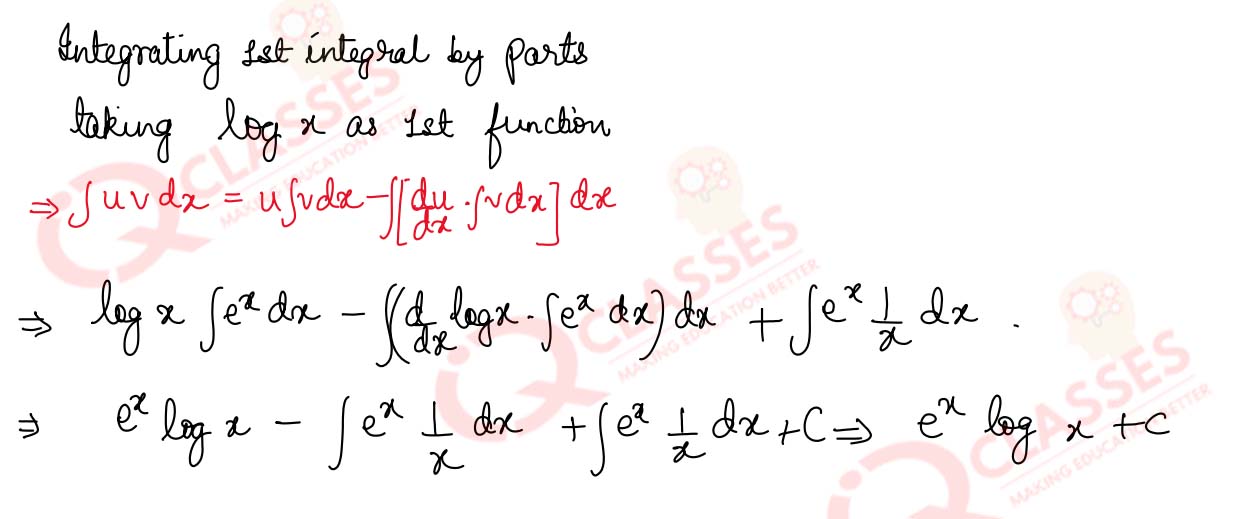 Integrating 1st integral by parts
taking log x as 1st function
⇒ ∫uvdx = u∫vdx-∫[du/dx·∫vdx]dx
⇒ log x ∫eˣdx - ∫(d/dx logx·∫eˣ dx)dx + ∫eˣ 1/x dx .
⇒ eˣ log x - ∫eˣ 1/x dx +∫eˣ 1/x dx+C⇒ eˣ log x +C
CLASSES
MAKING EDUCATION BETTER
CLASSES
MAKING EDUCATION BETTER
CLASSES
MAKING EDUCATION BETTER